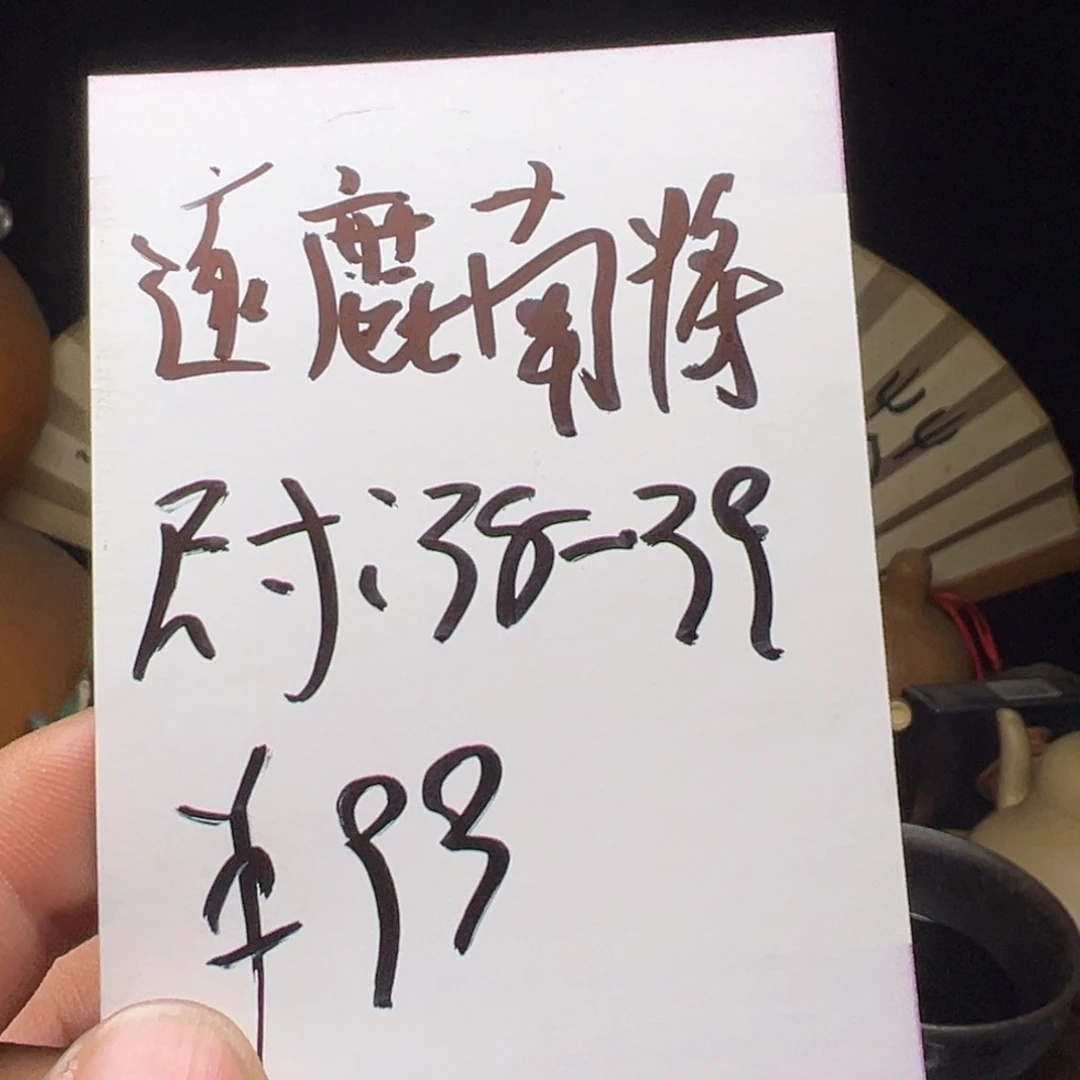 逐鹿南将
尺寸:38-39
¥99